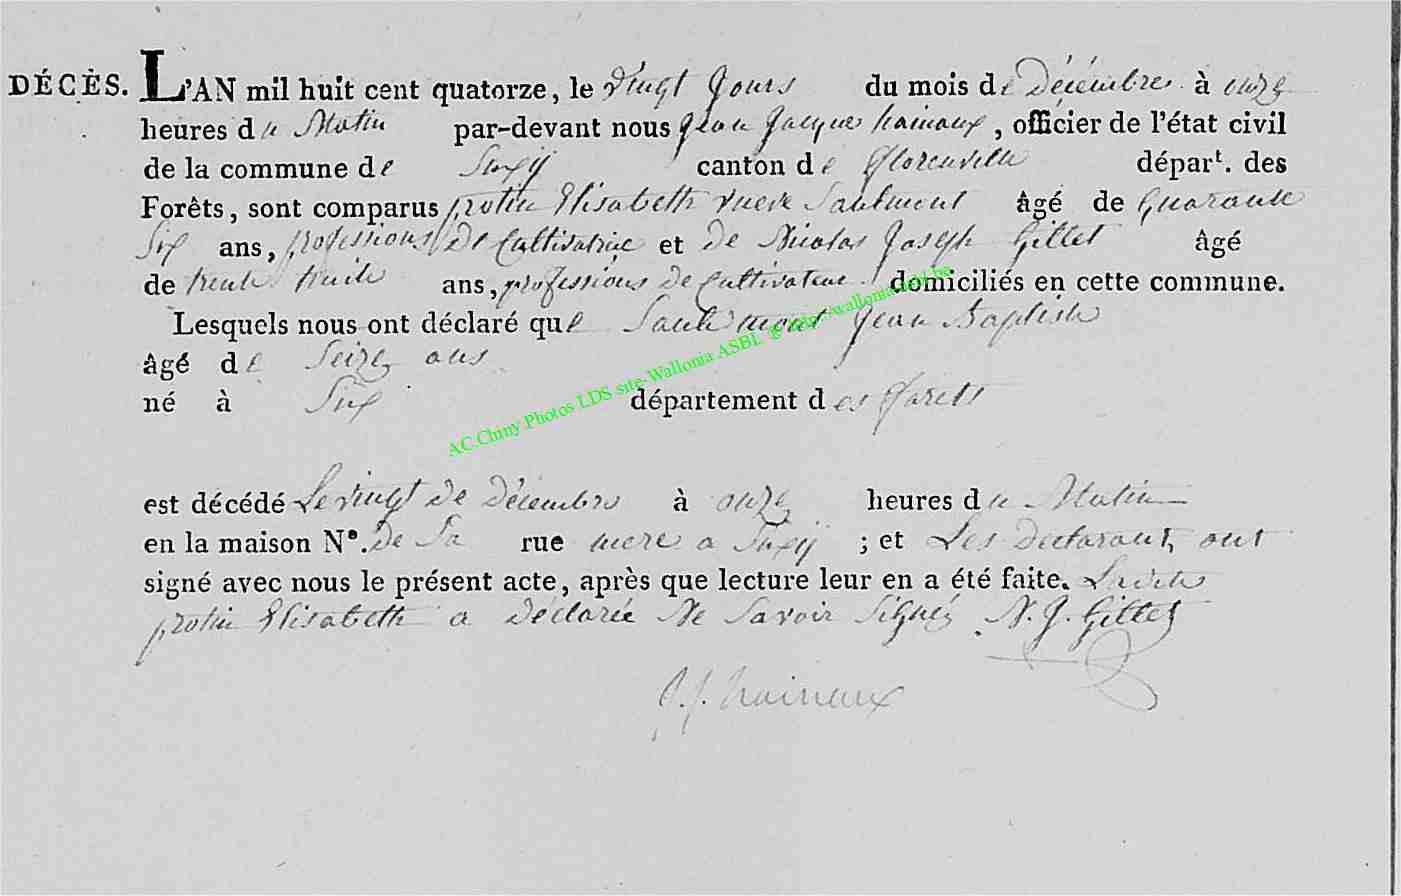 DÉCÈS. L'AN mil huit cent quatorze, le vingt Jours du mois de Décembre à onze
heures du Matin par-devant nous Jean Jacques hainaux, officier de l'état civil
de la commune de Suxÿ canton de florenville départ. des
Forêts, sont comparus protin Elisabeth vueve Saulmont âgé de Quarante
Six ans, professions De Cultivatrice et De Nicolas Joseph Gillet âgé
de trente huite ans, professions De Cultivateur domiciliés en cette commune.
Lesquels nous ont déclaré que Saulmont Jean Baptiste
âgé de Seize ans
né à Sux département des forets
AC.Chiny Photos LDS site-Wallonia ASBL
est décédé Le vingt De Décembre à onze heures du Matin
en la maison N°. De Sa rue mere a Suxÿ ; et Les Declarant ont
signé avec nous le présent acte, après que lecture leur en a été faite. Ladite
protin Elisabeth a Déclarée Ne Savoir Signés N. J. Gillet
J. J. hainaux